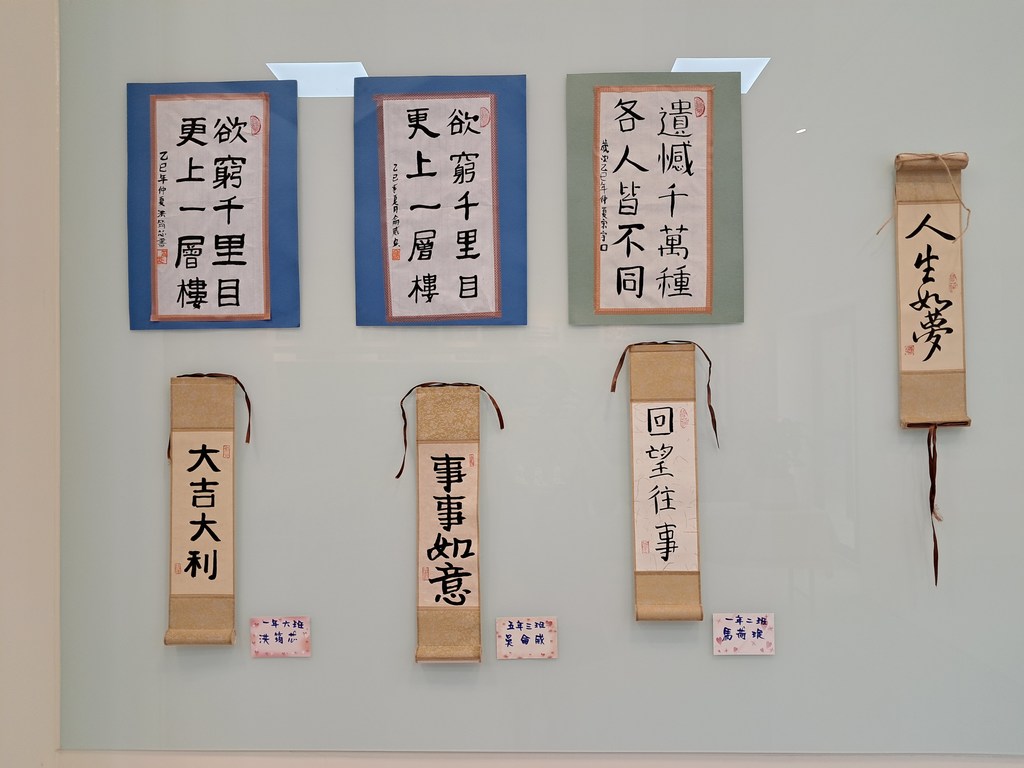 欲窮千里目
更上一層樓
乙巳年仲夏
欲窮千里目
更上一層樓
乙巳
遺憾千萬種
各人皆不同
歲次乙巳年仲夏
人生如夢
大吉大利
事事如意
回望往事
一年六班
洪筠芯
五年三班
吳俞成
一年二班
馬